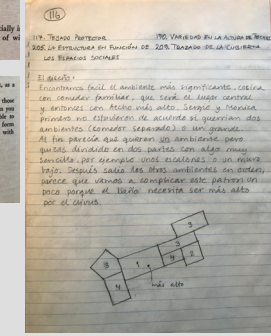 116
117. TEJADO PROTECTOR 190. VARIEDAD EN LA ALTURA DE TECHOS
205. LA ESTRUCTURA EN FUNCIÓN DE 209. TRAZADO DE LA CUBIERTA
LOS ESPACIOS SOCIALES
El diseño:
Encontramos facil el ambiente más significante, cocina
con comedor familiar, que será el lugar central
y entonces con techo más alto. Sergio y Monica
primero no estuvieron de acuerdo si querrian dos
ambientes (comedor separado) o un grande.
Al fin parecía que querian un ambiente pero
quizas dividido en dos partes con algo muy
sencillo, por ejemplo unos escalones o un muro
bajo. Después salio los otros ambientes en orden,
parece que vamos a complicar este patron un
poco porque el baño necesita ser más alto
por el
3
3
4 2
1
3
4
más alto
cially i
of wi
, as a
those
n you
ble to
form
with